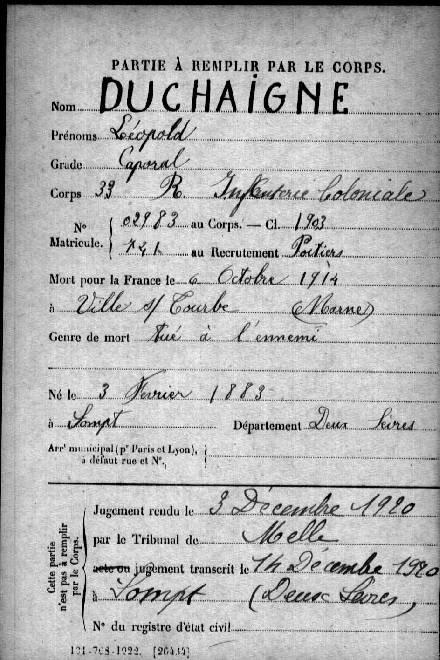 PARTIE À REMPLIR PAR LE CORPS.
Nom DUCHAIGNE
Prénoms Léopold
Grade Caporal
Corps 33 R. Infanterie Coloniale
N° Matricule. 02983 au Corps. — Cl. 1903
au Recrutement Poitiers
Mort pour la France le 6 Octobre 1914
à Ville s/ Tourbe (Marne)
Genre de mort tué à l'ennemi
Né le 3 Février 1883
à Sompt Département Deux Sèvres
Arr' municipal (p' Paris et Lyon),
à défaut rue et N°.
Cette partie n'est pas à remplir par le Corps.
Jugement rendu le 3 Décembre 1920
par le Tribunal de Melle
acte ou jugement transcrit le 14 Décembre 1920
à Sompt (Deux Sèvres)
N° du registre d'état civil
131-708-1922. [26434]